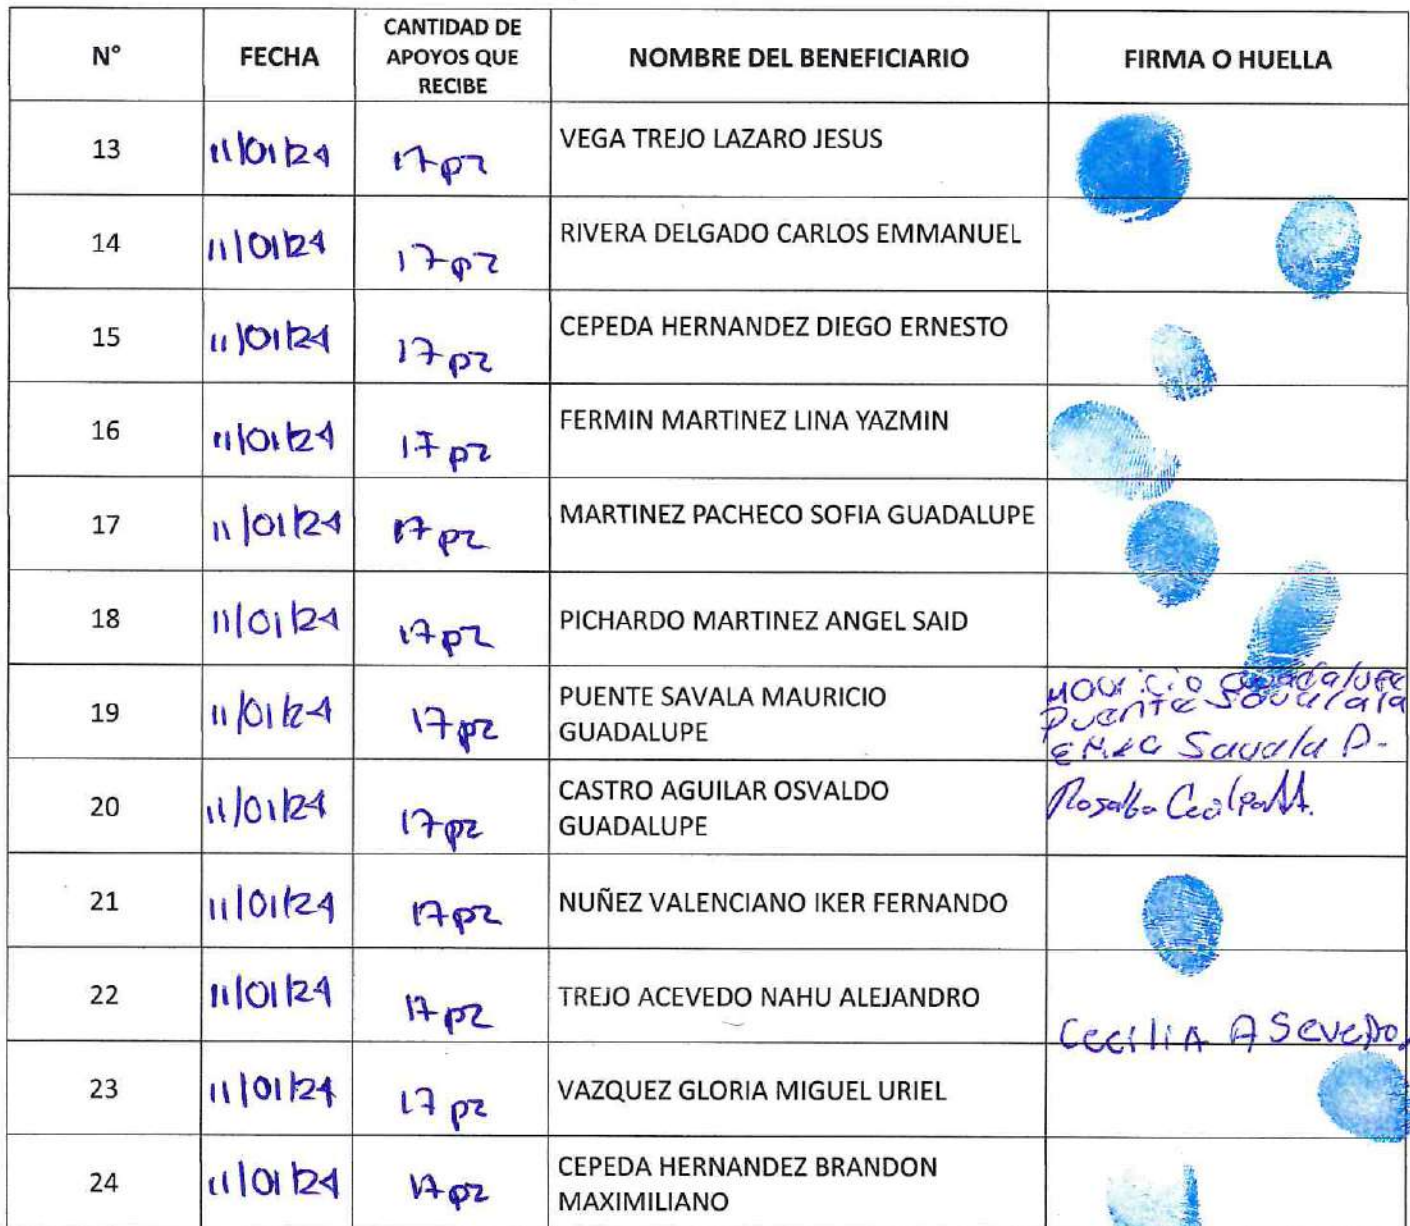 N° FECHA CANTIDAD DE APOYOS QUE RECIBE NOMBRE DEL BENEFICIARIO FIRMA O HUELLA
13 11/01/24 17 pz VEGA TREJO LAZARO JESUS
14 11/01/24 17 pz RIVERA DELGADO CARLOS EMMANUEL
15 11/01/24 17 pz CEPEDA HERNANDEZ DIEGO ERNESTO
16 11/01/24 17 pz FERMIN MARTINEZ LINA YAZMIN
17 11/01/24 17 pz MARTINEZ PACHECO SOFIA GUADALUPE
18 11/01/24 17 pz PICHARDO MARTINEZ ANGEL SAID
19 11/01/24 17 pz PUENTE SAVALA MAURICIO
GUADALUPE
Puente
Savala P.
20 11/01/24 17 pz CASTRO AGUILAR OSVALDO
GUADALUPE
Rosalba
21 11/01/24 17 pz NUÑEZ VALENCIANO IKER FERNANDO
22 11/01/24 17 pz TREJO ACEVEDO NAHU ALEJANDRO CeciliA ASeveDo.
23 11/01/24 17 pz VAZQUEZ GLORIA MIGUEL URIEL
24 11/01/24 17 pz CEPEDA HERNANDEZ BRANDON
MAXIMILIANO